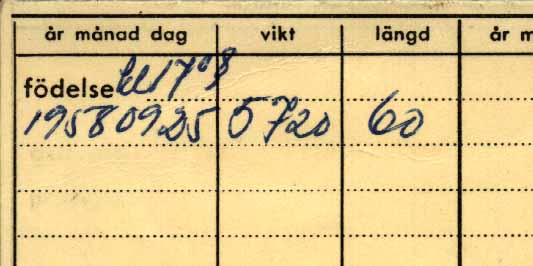 år månad dag vikt längd år m
födelse kl 17 08
1958 09 25 5720 60